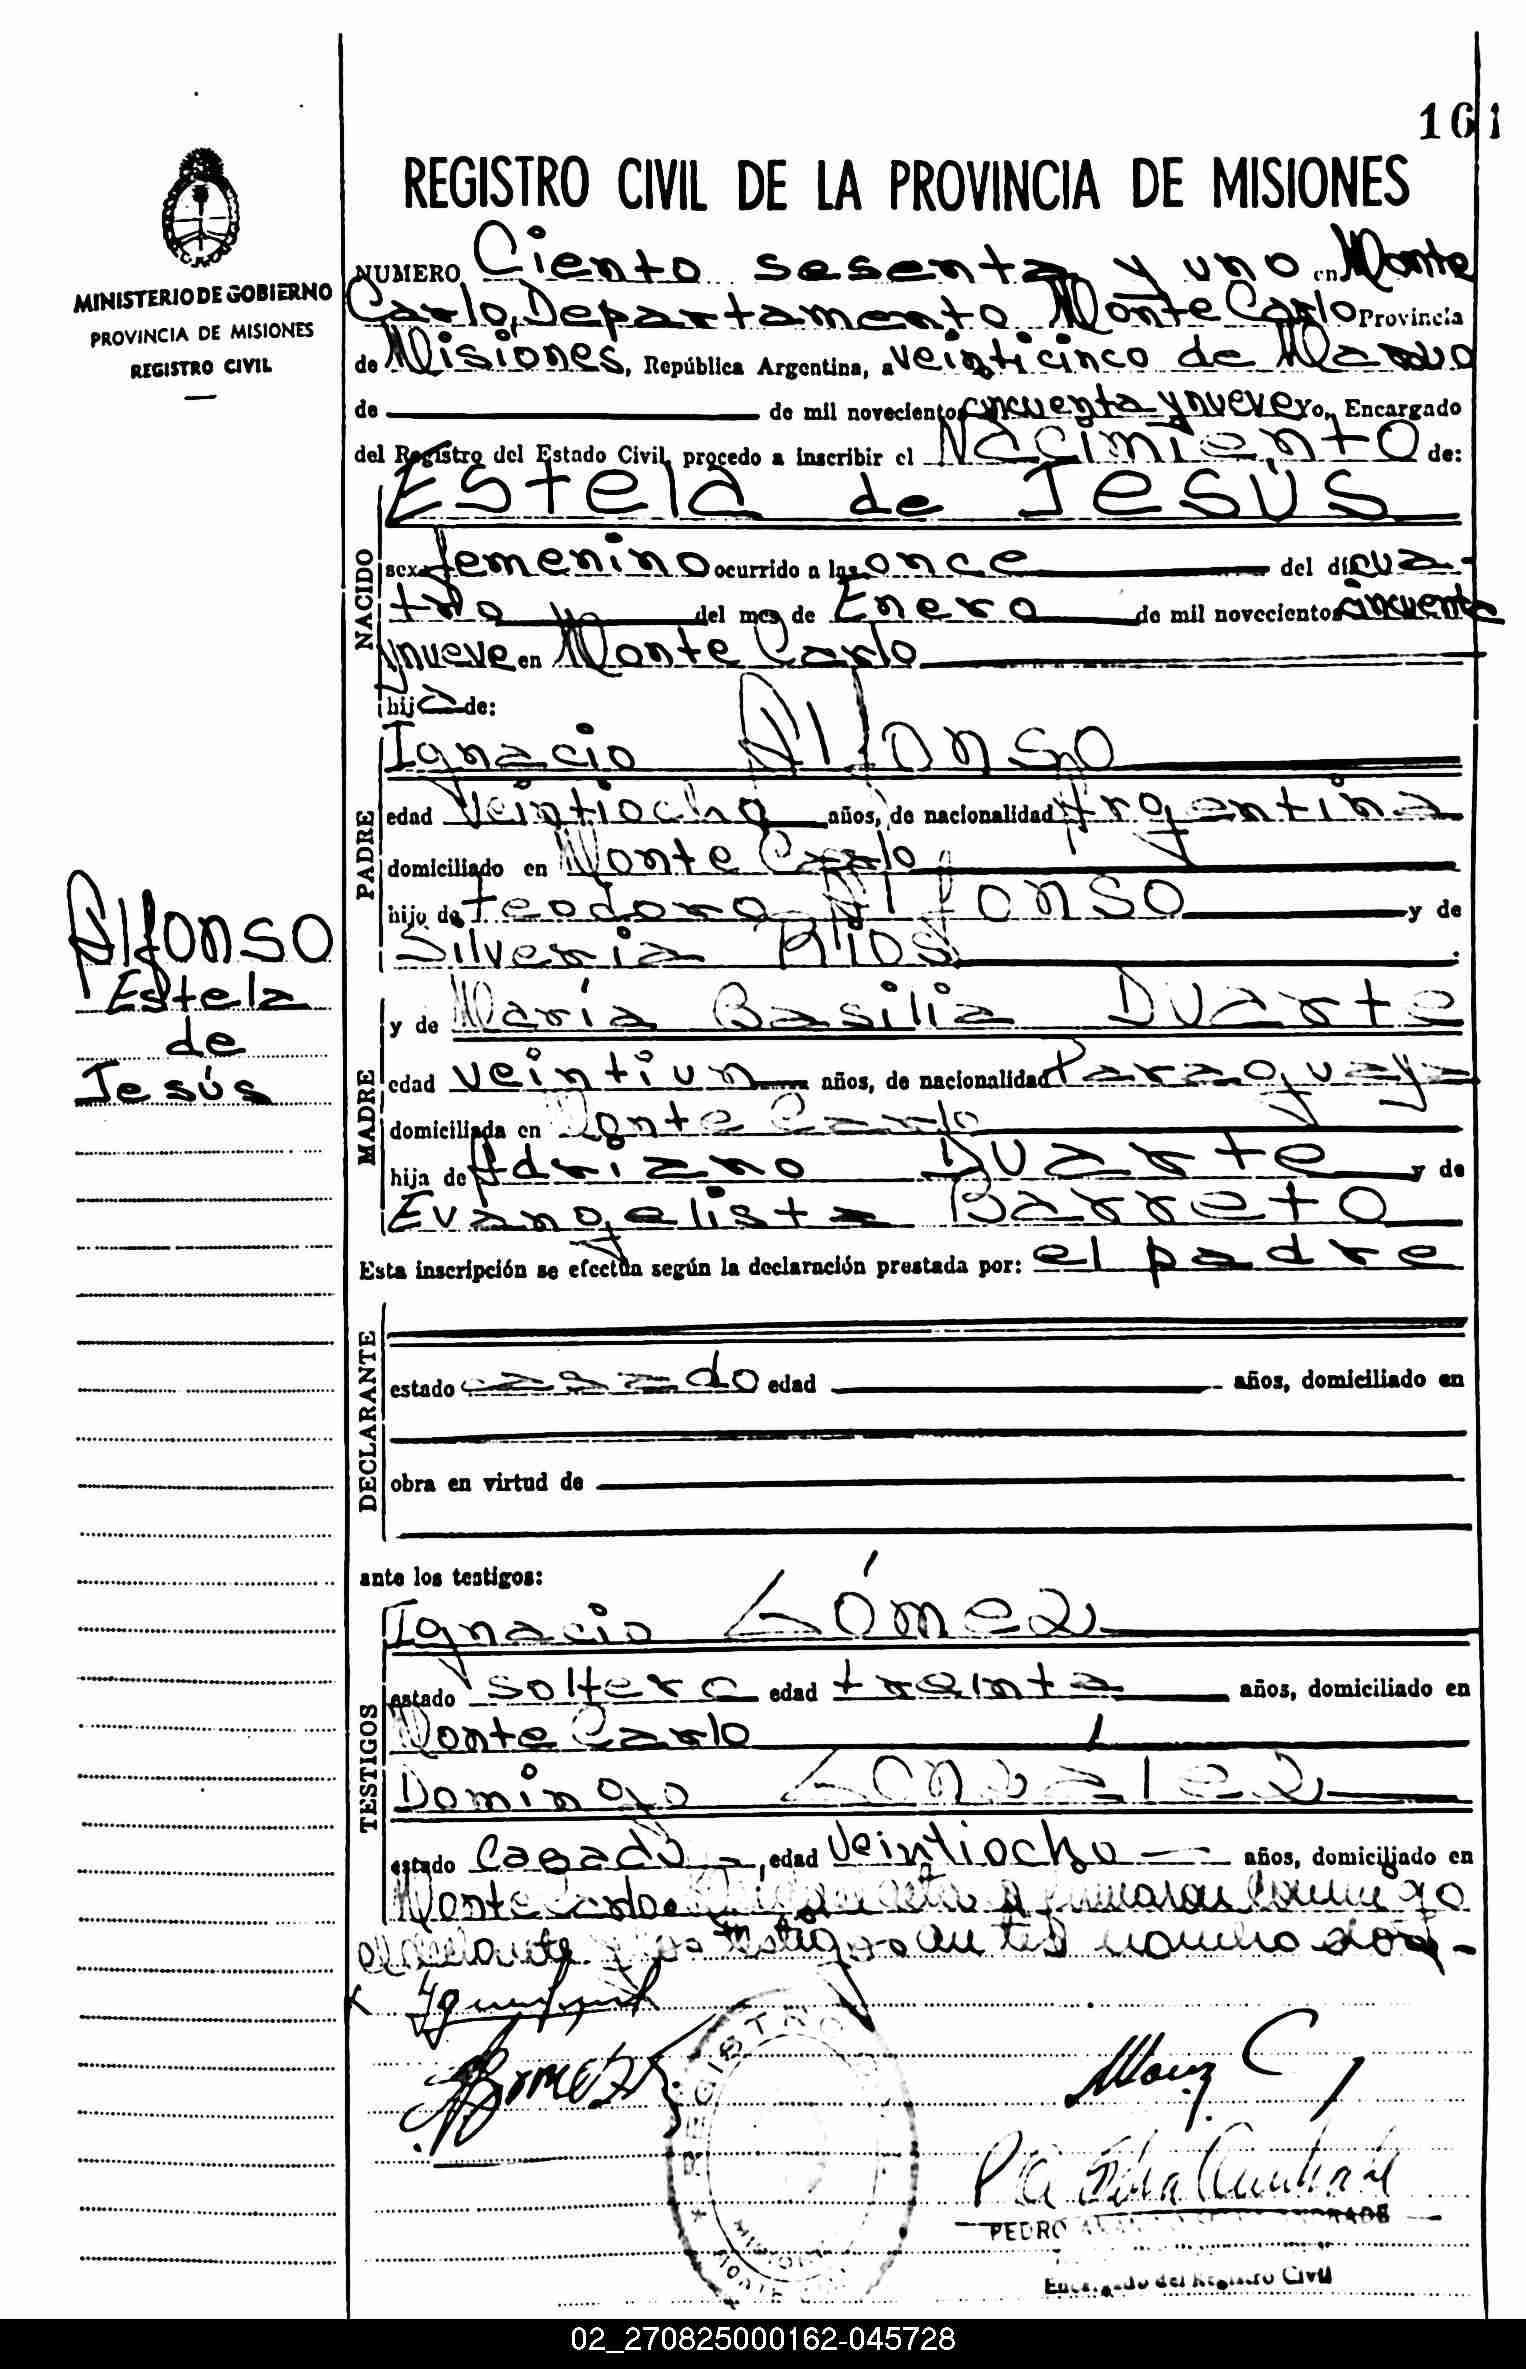 161
MINISTERIO DE GOBIERNO
PROVINCIA DE MISIONES
REGISTRO CIVIL
REGISTRO CIVIL DE LA PROVINCIA DE MISIONES
NUMERO Ciento sesenta y uno en Monte
Carlo, Departamento Monte Carlo Provincia
de Misiones, República Argentina, a veinticinco de Marzo
de de mil novecientos cincuenta y nueve yo, Encargado
del Registro del Estado Civil, procedo a inscribir el Nacimiento de:
NACIDO
Estela de Jesús
sexo femenino ocurrido a las once del día cua-
tro del mes de Enero de mil novecientos cincuenta
y nueve en Monte Carlo
hija de:
PADRE
Ignacio Alfonso
edad Veintiocho años, de nacionalidad Argentina
domiciliado en Monte Carlo
hijo de Teodoro Alfonso y de
Silveria Ríos
Alfonso
Estela
de
Jesús
MADRE
y de María Basilia Duarte
edad veintiun años, de nacionalidad Paraguaya
domiciliada en Monte Carlo
hija de Adriano Duarte y de
Evangelista Barreto
Esta inscripción se efectúa según la declaración prestada por: el padre
DECLARANTE
estado casado edad años, domiciliado en
obra en virtud de
ante los testigos:
TESTIGOS
Ignacio Gómez
estado soltero edad treinta años, domiciliado en
Monte Carlo
Domingo González
estado Casado edad Veintiocho años, domiciliado en
Monte Carlo acta y firmaron conmigo
el declarante y los testigos antes nombrados.-
REGISTRO
MISIONES
PEDRO
Encargado del Registro Civil
02_270825000162-045728